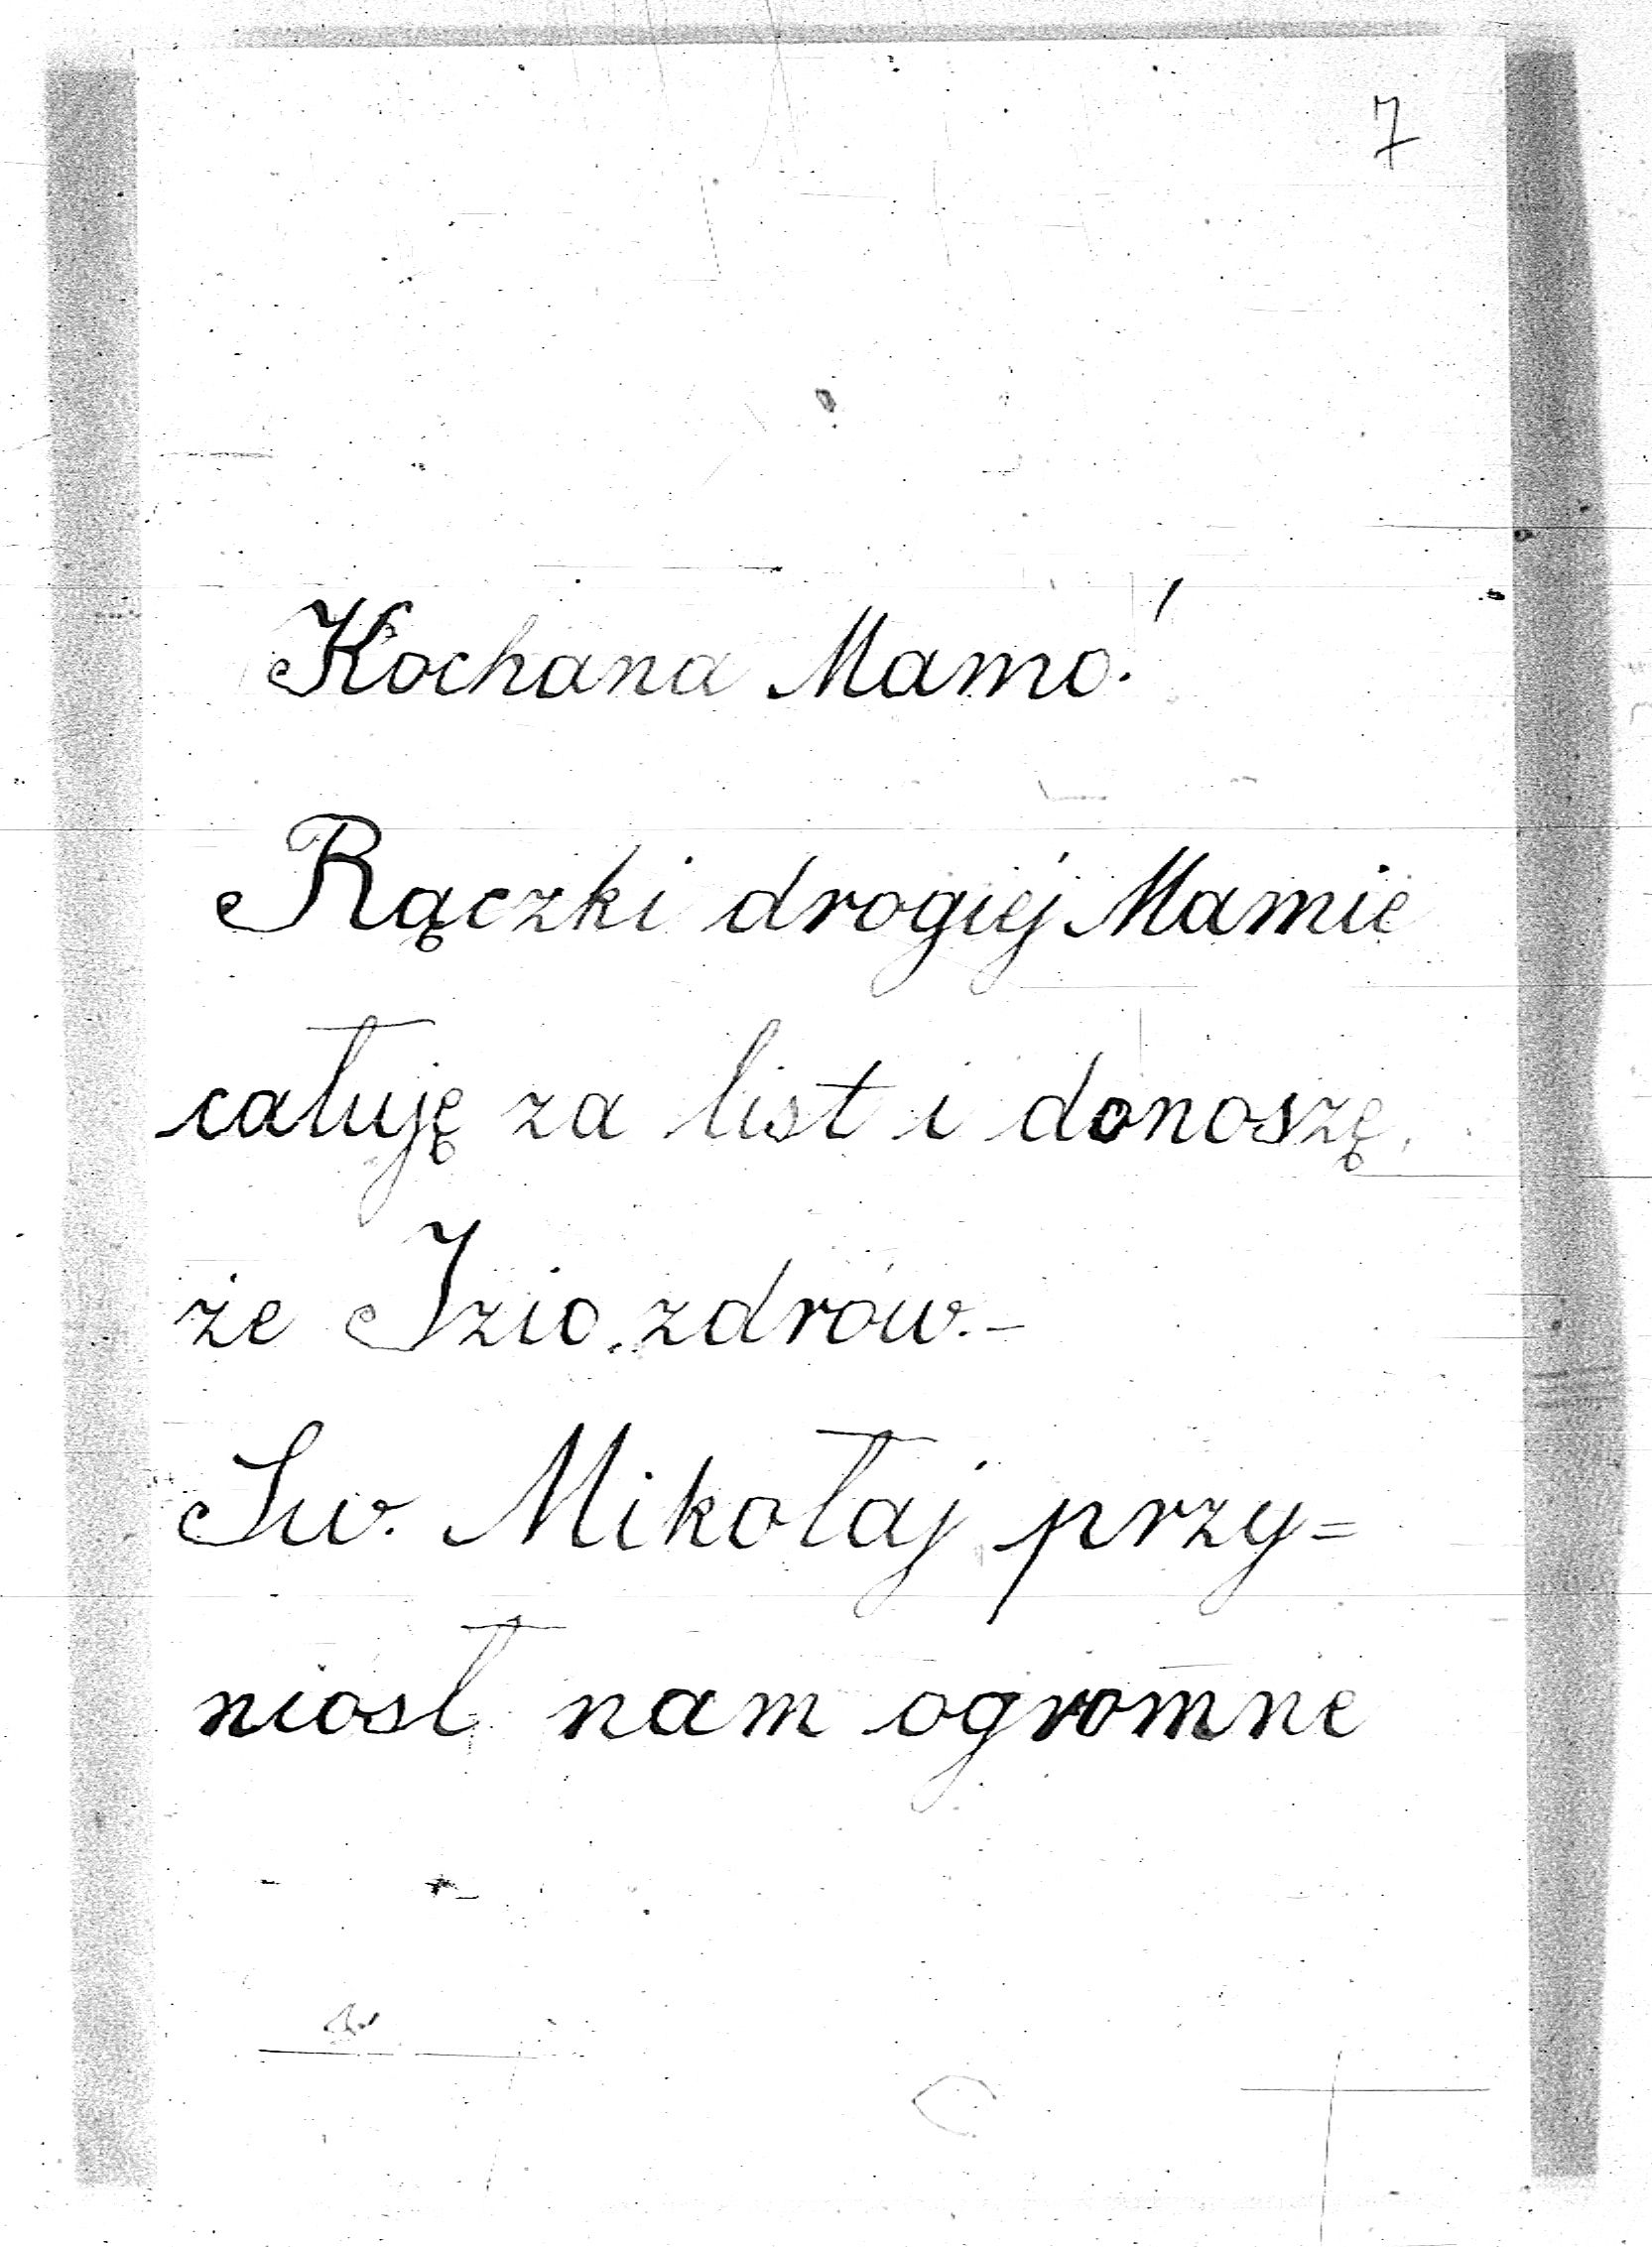 7
Kochana Mamo!
Rączki drogiéj Mamie
całuję za list i donoszę,
że Izio zdrów.–
Sw. Mikołaj przy=
niósł nam ogromne